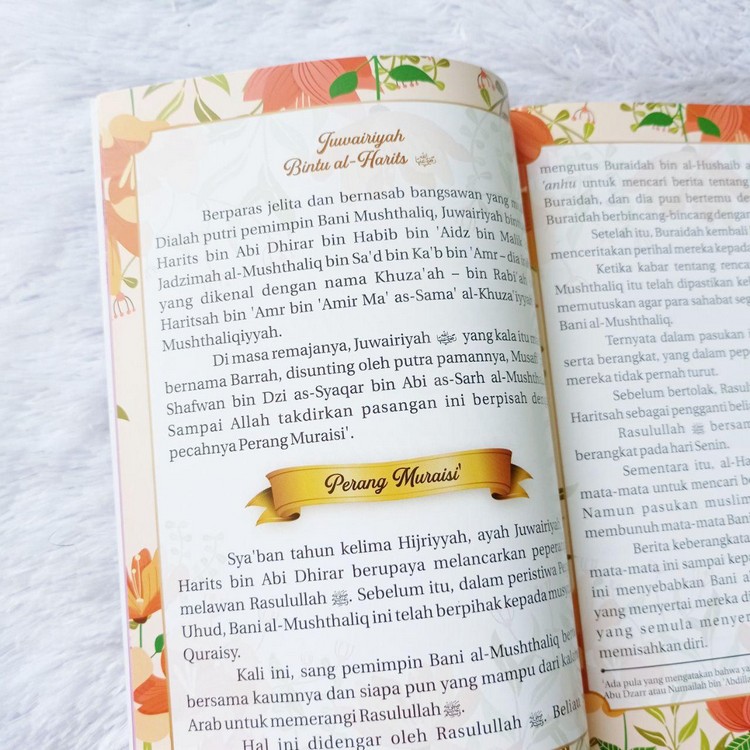 Juwairiyah
Bintu al-Harits
Berparas jelita dan bernasab bangsawan yang
Dialah putri pemimpin Bani Mushthaliq, Juwairiyah
Harits bin Abi Dhirar bin Habib bin 'Aidz bin Malik
Jadzimah al-Mushthaliq bin Sa'd bin Ka'b bin 'Amr – dia
yang dikenal dengan nama Khuza'ah – bin Rabi'ah
Haritsah bin 'Amr bin 'Amir Ma' as-Sama' al-Khuza'iyyah
Mushthaliqiyyah.
Di masa remajanya, Juwairiyah yang kala itu
bernama Barrah, disunting oleh putra pamannya,
Shafwan bin Dzi as-Syaqar bin Abi as-Sarh al-Mushtha
Sampai Allah takdirkan pasangan ini berpisah
pecahnya Perang Muraisi'.
Perang Muraisi'
Sya'ban tahun kelima Hijriyyah, ayah Juwairiyah
Harits bin Abi Dhirar berupaya melancarkan pepera
melawan Rasulullah ﷺ. Sebelum itu, dalam peristiwa Pe
Uhud, Bani al-Mushthaliq ini telah berpihak kepada
Quraisy.
Kali ini, sang pemimpin Bani al-Mushthaliq
bersama kaumnya dan siapa pun yang mampu dari
Arab untuk memerangi Rasulullah ﷺ.
Hal ini didengar oleh Rasulullah ﷺ. Beliau
mengutus Buraidah bin al-Hushaib a
'anhu untuk mencari berita tentang
Buraidah, dan dia pun bertemu de
Buraidah berbincang-bincang dengan
Setelah itu, Buraidah kembali
menceritakan perihal mereka kepada
Ketika kabar tentang renca
Mushthaliq itu telah dipastikan ke
memutuskan agar para sahabat seg
Bani al-Mushthaliq.
Ternyata dalam pasukan
serta berangkat, yang dalam pep
mereka tidak pernah turut.
Sebelum bertolak, Rasul
Haritsah sebagai pengganti beli
Rasulullah ﷺ bersam
berangkat pada hari Senin.
Sementara itu, al-Ha
mata-mata untuk mencari be
Namun pasukan muslim
membunuh mata-mata Bani
Berita keberangkata
mata-mata ini sampai kepa
ini menyebabkan Bani a
yang menyertai mereka di
yang semula menyer
memisahkan diri.
¹Ada pula yang mengatakan bahwa ya
Abu Dzarr atau Numailah bin 'Abdilla